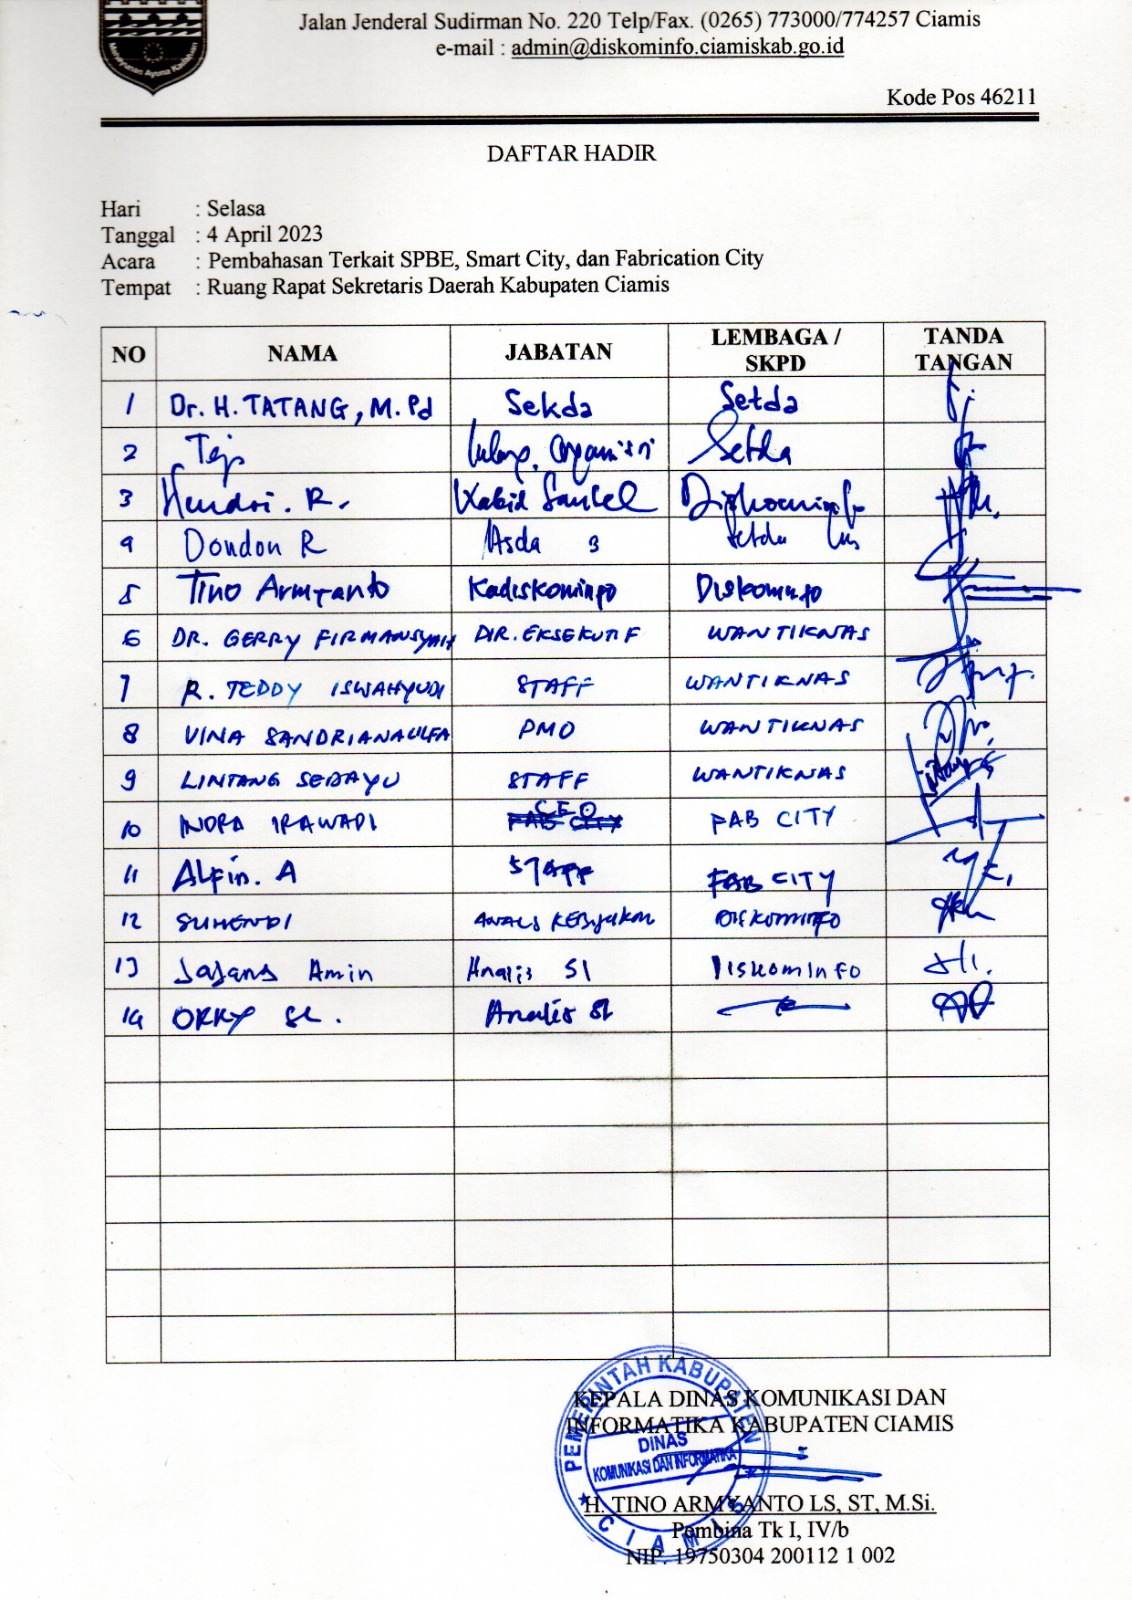 Jalan Jenderal Sudirman No. 220 Telp/Fax. (0265) 773000/774257 Ciamis
e-mail : admin@diskominfo.ciamiskab.go.id
Kode Pos 46211
DAFTAR HADIR
Hari : Selasa
Tanggal : 4 April 2023
Acara : Pembahasan Terkait SPBE, Smart City, dan Fabrication City
Tempat : Ruang Rapat Sekretaris Daerah Kabupaten Ciamis
NO NAMA JABATAN LEMBAGA / SKPD TANDA TANGAN
1 Dr. H. TATANG, M.Pd Sekda Setda
2 Setda
3 Hendri. R. Kabid Diskominfo
4 Dondon R Asda 3 Setda
5 Tino Armyanto Kadiskominfo Diskominfo
6 DR. GERRY FIRMANSYAH DIR. EKSEKUTIF WANTIKNAS
7 R. TEDDY ISWAHYUDI STAFF WANTIKNAS
8 VINA SANDRIANAULFA PMO WANTIKNAS
9 LINTANG SEBAYU STAFF WANTIKNAS
10 INDRA IRAWADI CEO FAB CITY
11 Alfin. A STAFF FAB CITY
12 SUHENDI ANALIS KEBIJAKAN DISKOMINFO
13 Jajang Amin Analis SI Diskominfo
14 ORKY Analis SI
KEPALA DINAS KOMUNIKASI DAN
INFORMATIKA KABUPATEN CIAMIS
PEMERINTAH KABUPATEN
DINAS
KOMUNIKASI DAN INFORMATIKA
CIAMIS
H. TINO ARMYANTO LS, ST, M.Si.
Pembina Tk I, IV/b
NIP. 19750304 200112 1 002